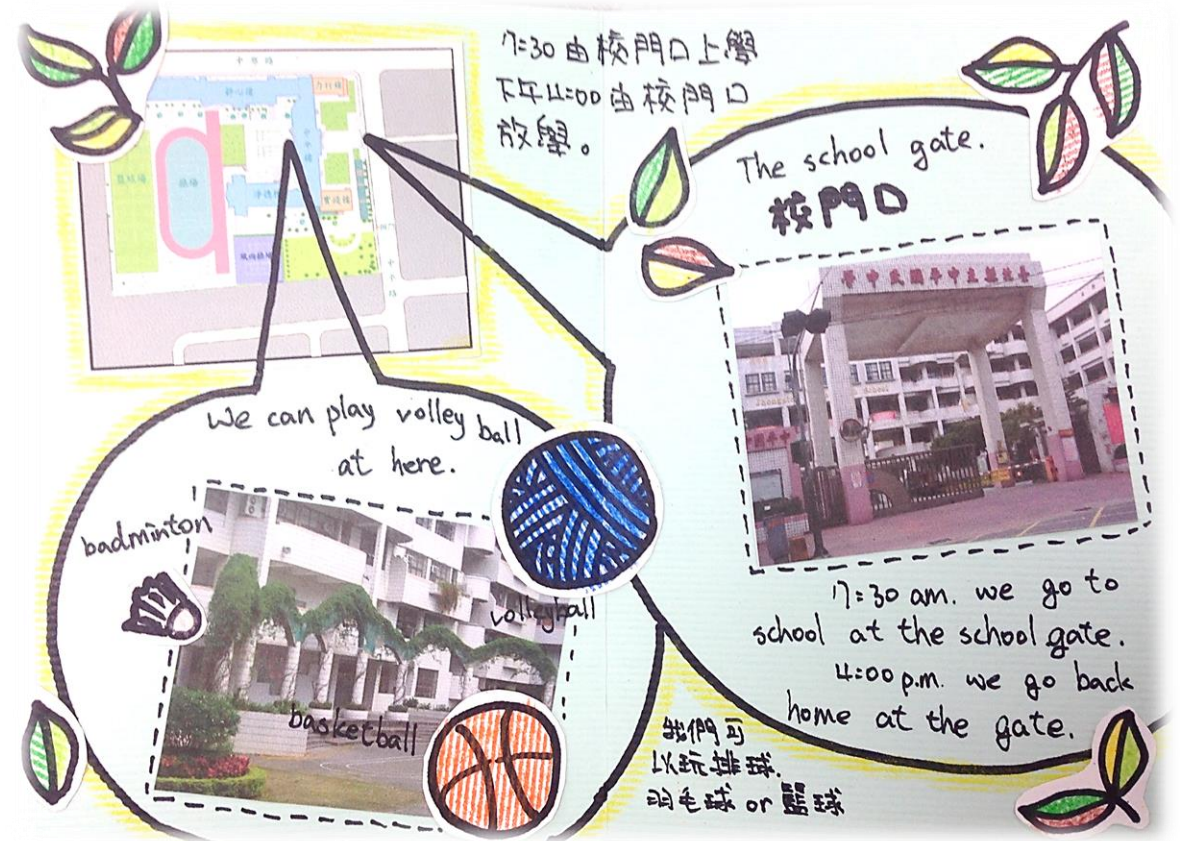 7:30 由校門口上學
下午4:00由校門口
放學。
The school gate.
校門口
台北縣立中平國民中學
7:30 am. we go to
school at the school gate.
4:00 p.m. we go back
home at the gate.
We can play volley ball
at here.
badminton
volleyball
basketball
我們可
以玩排球.
羽毛球 or 籃球
中華路
靜心樓
力行樓
中平樓
操場
實踐樓
風雨操場
中平路